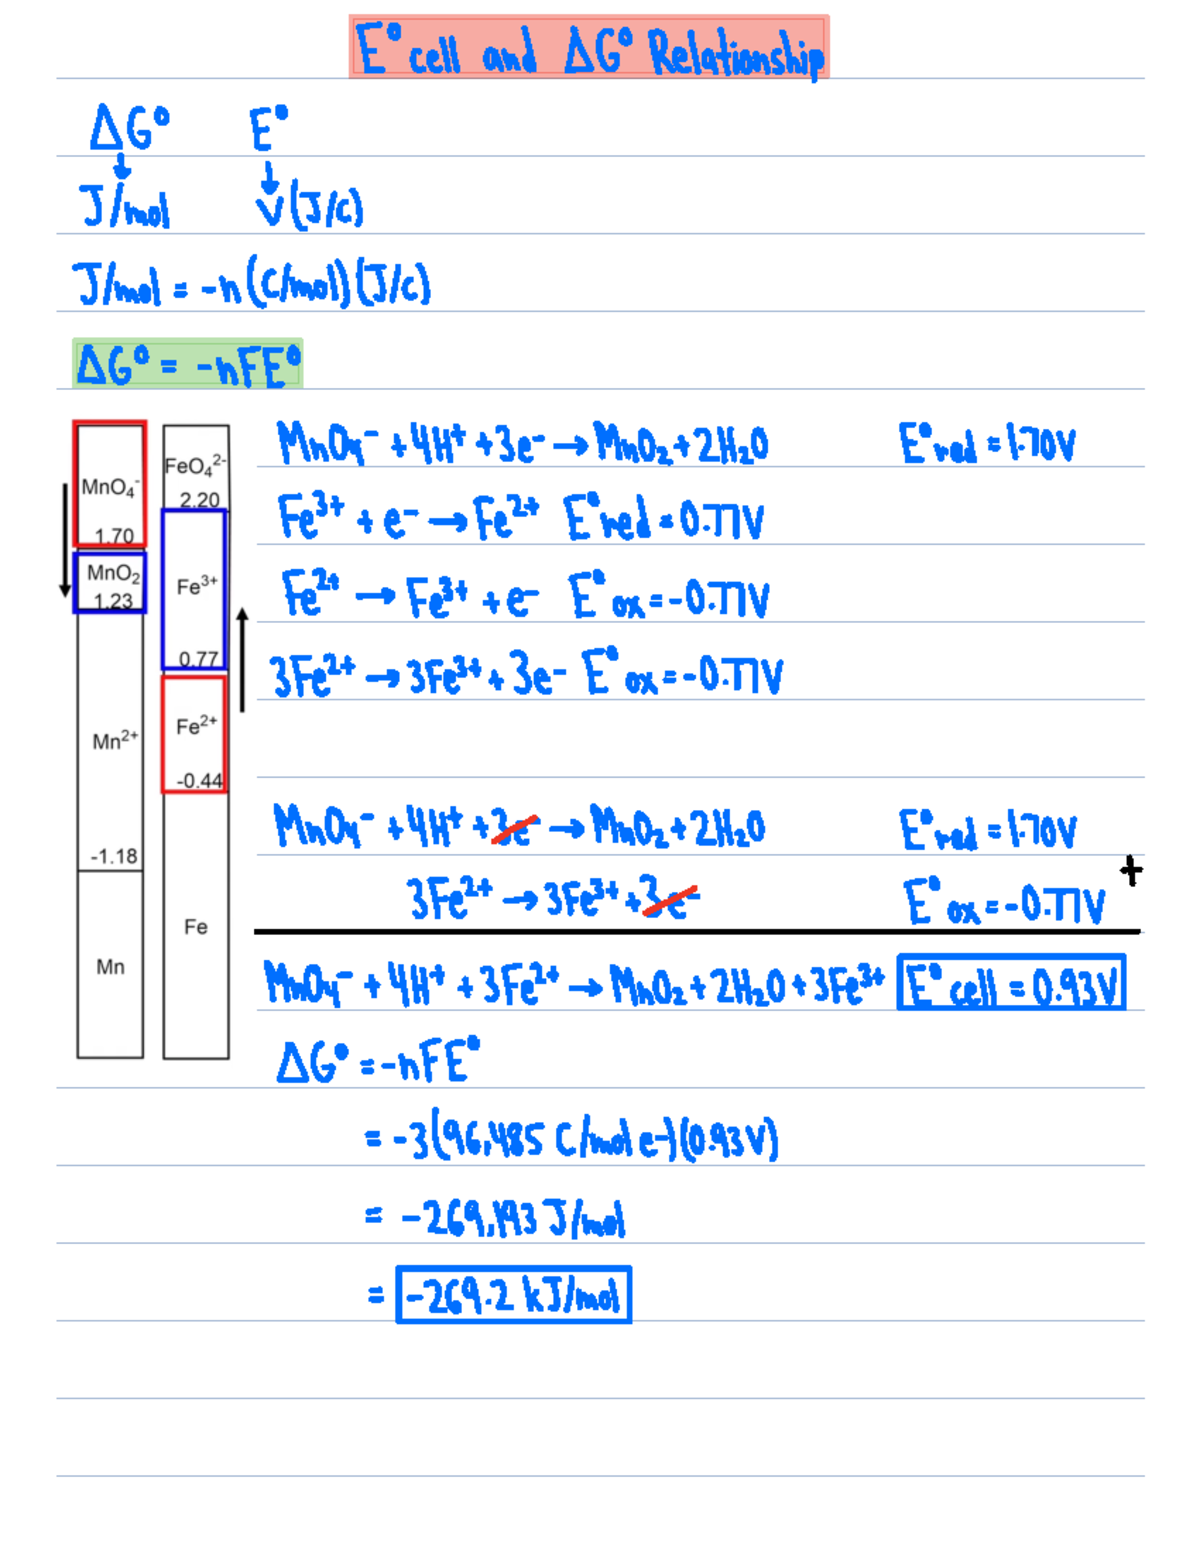 E° cell and ΔG° Relationship
ΔG° E°
↓ ↓
J/mol V(J/C)
J/mol = -n(C/mol)(J/C)
ΔG° = -nFE°
MnO₄⁻
1.70
MnO₂
1.23
Mn²⁺
-1.18
Mn
FeO₄²⁻
2.20
Fe³⁺
0.77
Fe²⁺
-0.44
Fe
MnO₄⁻ + 4H⁺ + 3e⁻ → MnO₂ + 2H₂O E°red = 1.70V
Fe³⁺ + e⁻ → Fe²⁺ E°red = 0.77V
Fe²⁺ → Fe³⁺ + e⁻ E°ox = -0.77V
3Fe²⁺ → 3Fe³⁺ + 3e⁻ E°ox = -0.77V
MnO₄⁻ + 4H⁺ + 3e⁻ → MnO₂ + 2H₂O E°red = 1.70V
+
3Fe²⁺ → 3Fe³⁺ + 3e⁻ E°ox = -0.77V
MnO₄⁻ + 4H⁺ + 3Fe²⁺ → MnO₂ + 2H₂O + 3Fe³⁺ E°cell = 0.93V
ΔG° = -nFE°
= -3(96,485 C/mol e-)(0.93V)
= -269,193 J/mol
= -269.2 kJ/mol